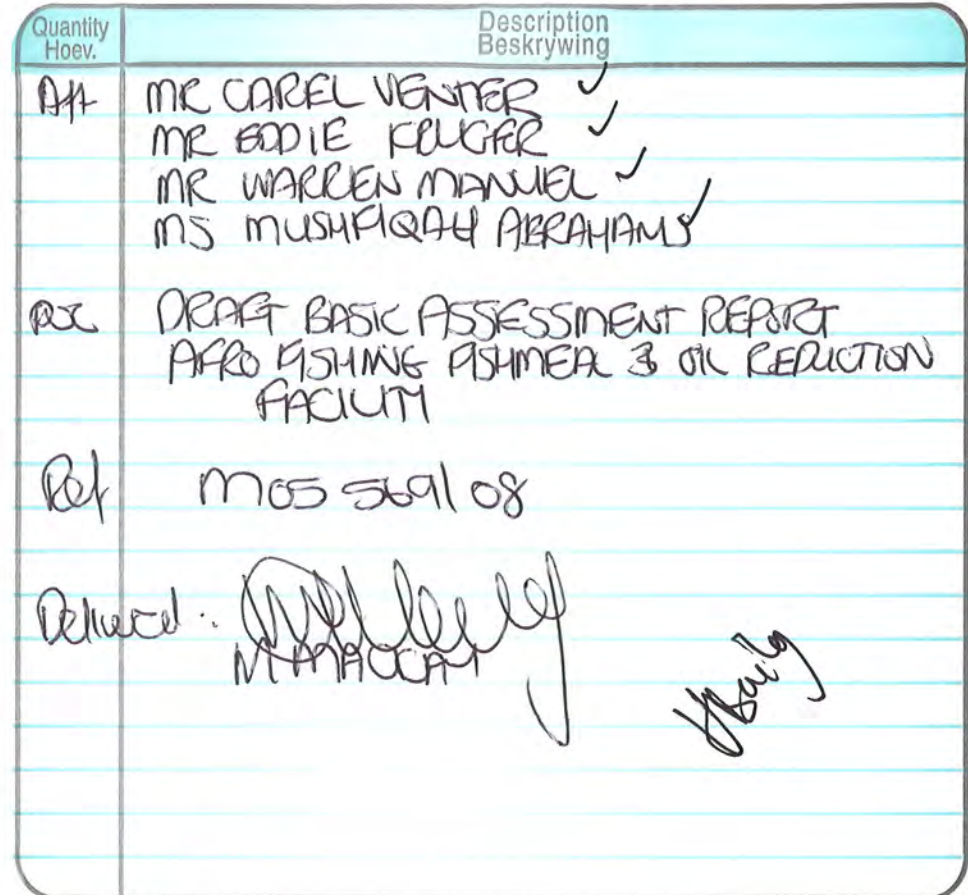 Quantity Description
Hoev. Beskrywing
Att MR CAREL VENTER ✓
MR EDDIE KRUGER ✓
MR WARREN MANUEL ✓
MS MUSHFIQAH ABRAHAMS ✓
DRAFT BASIC ASSESSMENT REPORT
AFRO FISHING FISHMEAL & OIL REDUCTION
FACILITY
Ref MOS 569/08
Delivered: